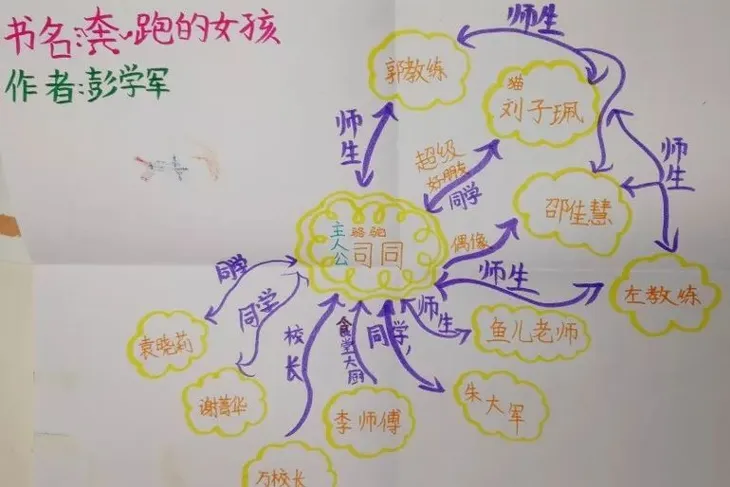 书名:奔跑的女孩
作者:彭学军
师生
郭教练
猫
刘子珮
师生
超级
好朋友
同学
师生
邵佳慧
主人公
骆驼
司同
偶像
师生
左教练
同学
同学
校长
食堂大厨
同学,
师生
鱼儿老师
袁晓莉
谢菁华
李师傅
朱大军
万校长